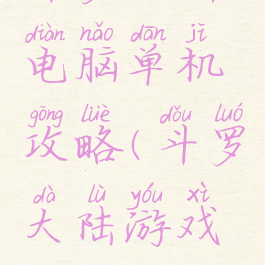 diàn nǎo dān jī
电脑单机
gōng lüè dǒu luó
攻略(斗罗
dà lù yóu xì
大陆游戏